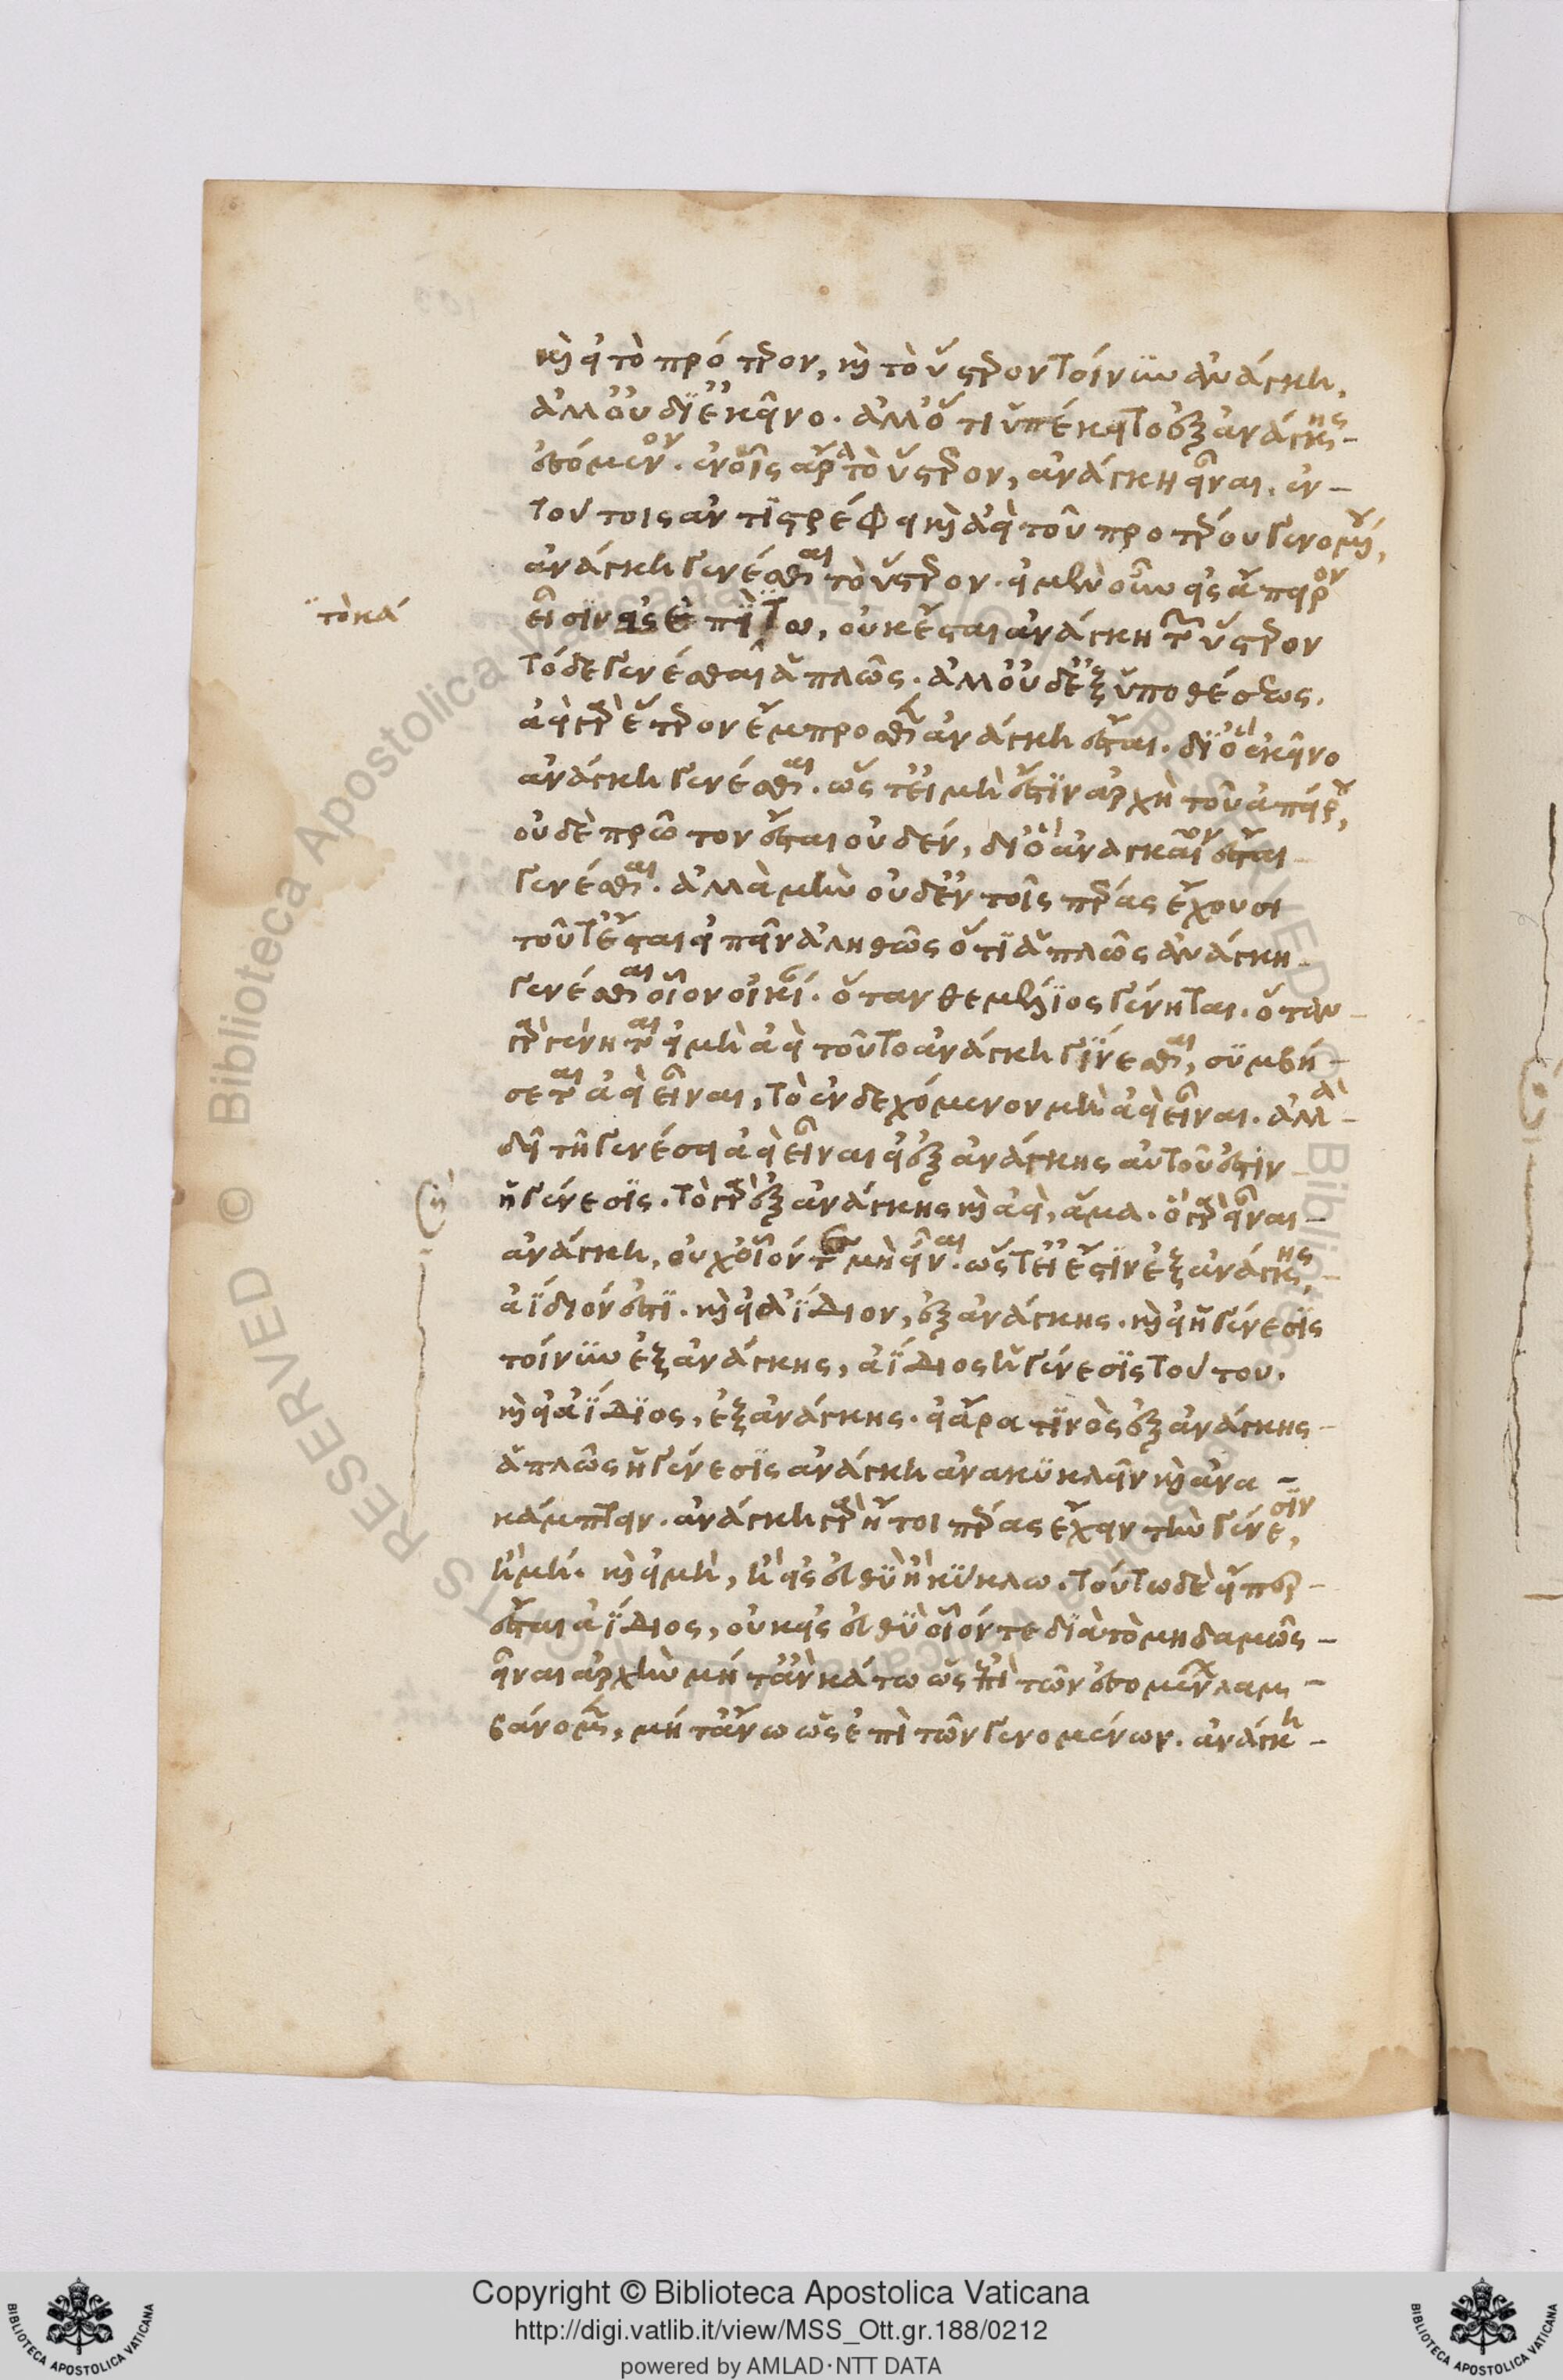 καὶ εἰ τὸ πρότερον, καὶ τὸ ὕστερον τοίνυν ἀνάγκη.
ἀλλ' οὐ δι' ἐκεῖνο. ἀλλ' ὅτι ὑπέκειτο ἐξ ἀνάγκης
ἐσόμενον. ἐν οἷς ἄρα τὸ ὕστερον, ἀνάγκη εἶναι. ἐν
τούτοις ἀντιστρέφει καὶ ἀεὶ τοῦ προτέρου γενομένου,
ἀνάγκη γενέσθαι τὸ ὕστερον. εἰ μὲν οὖν εἰς ἄπειρον
το κά
εἶσιν εἰς ἐπὶ τω, οὐκ ἔσται ἀνάγκη τὸ ὕστερον
τόδε γενέσθαι ἁπλῶς. ἀλλ' οὐδ' ἐξ ὑποθέσεως.
ἀεὶ γὰρ ἕτερον ἔμπροσθεν ἀνάγκη ἔσται. διὸ ἐκεῖνο
ἀνάγκη γενέσθαι. ὥστ' εἰ μή ἐστιν ἀρχὴ τοῦ ἀπείρου,
οὐδὲ πρῶτον ἔσται οὐδέν, δι' ὃ ἀναγκαῖον ἔσται
γενέσθαι. ἀλλὰ μὴν οὐδ' ἐν τοῖς πέρας ἔχουσι
τοῦτ' ἔσται εἰπεῖν ἀληθῶς ὅτι ἁπλῶς ἀνάγκη
γενέσθαι οἷον οἰκία. ὅταν θεμέλιος γένηται. ὅταν
γὰρ γένηται εἰ μὴ ἀεὶ τοῦτο ἀνάγκη γίνεσθαι, συμβή-
σεται ἀεὶ εἶναι, τὸ ἐνδεχόμενον μὴ ἀεὶ εἶναι. ἀλλὰ
δεῖ τῇ γενέσει ἀεὶ εἶναι εἰ ἐξ ἀνάγκης αὐτοῦ ἐστιν
ἡ γένεσις. τὸ γὰρ ἐξ ἀνάγκης καὶ ἀεὶ, ἅμα. ὃ γὰρ εἶναι
ἀνάγκη, οὐχ οἷόν τε μὴ εἶναι. ὥστ' εἰ ἔστιν ἐξ ἀνάγκης,
ἀΐδιόν ἐστι. καὶ εἰ ἀΐδιον, ἐξ ἀνάγκης. καὶ εἰ ἡ γένεσις
τοίνυν ἐξ ἀνάγκης, ἀΐδιος ἡ γένεσις τούτου.
καὶ εἰ ἀΐδιος, ἐξ ἀνάγκης. εἰ ἄρα τινὸς ἐξ ἀνάγκης
ἁπλῶς ἡ γένεσις ἀνάγκη ἀνακυκλεῖν καὶ ἀνα-
κάμπτειν. ἀνάγκη γὰρ ἤτοι πέρας ἔχειν τὴν γένεσιν,
ἢ μή. καὶ εἰ μή, ἢ εἰς εὐθὺ ἢ κύκλω. τούτω δὲ εἴπερ
ἔσται ἀΐδιος, οὐκ εἰς εὐθὺ οἷόν τε διὰ τὸ μηδαμῶς
εἶναι ἀρχὴν μήτ' ἂν κάτω ὡς ἐπὶ τῶν ἐσομένων λαμ-
βάνομεν, μήτ' ἄνω ὡς ἐπὶ τῶν γενομένων. ἀνάγκη